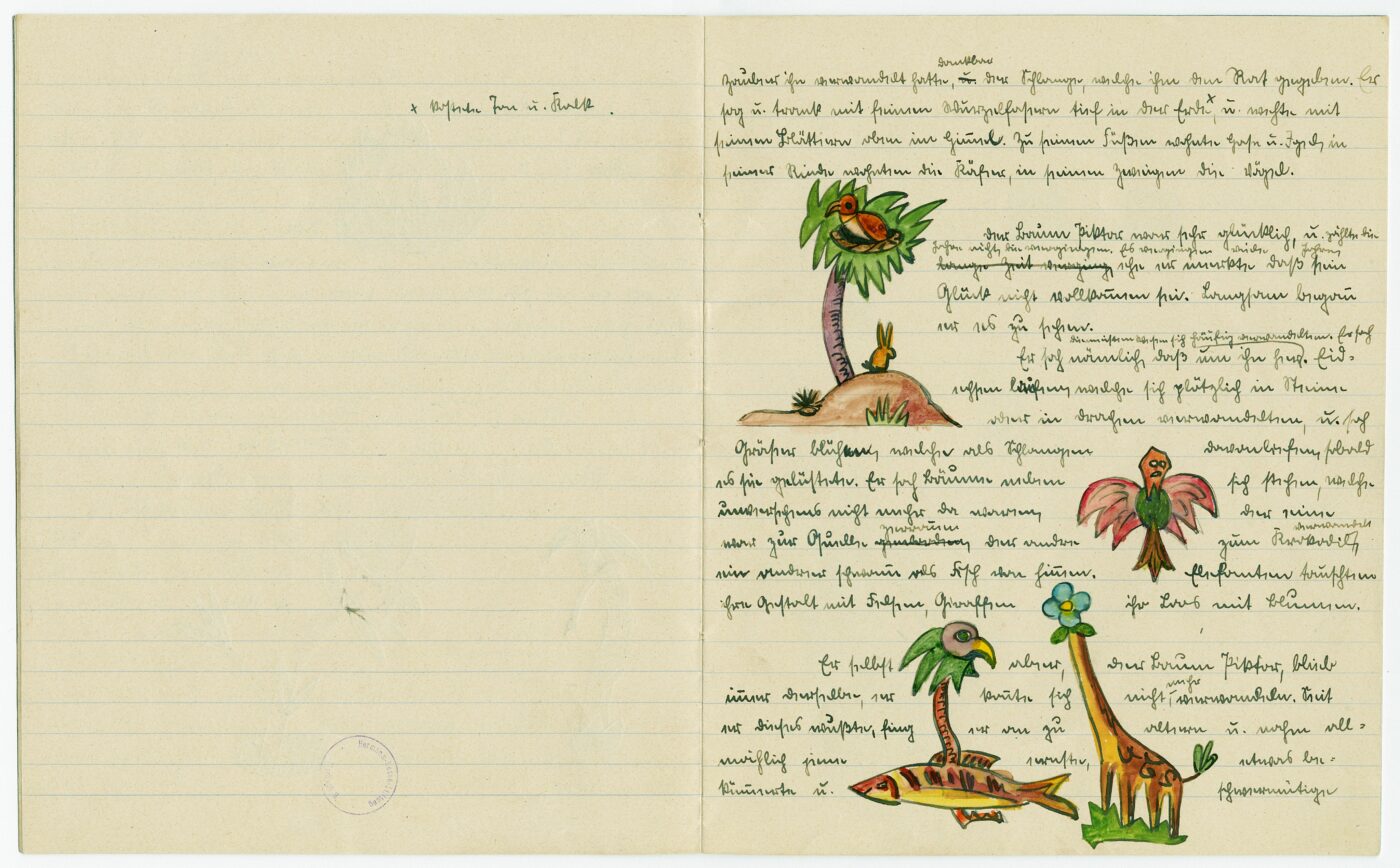 x kostete Ton u. Kalk.
dankbar
Zauber ihn verwandelt hatte, u. der Schlange, welche ihm den Rat gegeben. Er
sog u. trank mit seinen Wurzelfasern tief in der Erde x, u. wehte mit
seinen Blättern oben im Himel. Zu seinen Füßen wohnte Hase u. Igel, in
seiner Rinde wohnten die Käfer, in seinen Zweigen die Vögel.
Der Baum Piktor war sehr glücklich, u. zählte die
Jahre nicht, die vergingen. Es vergingen viele Jahre,
lange Zeit verging, ehe er merkte daß sein
Glück nicht vollkomen sei. Langsam began
er es zu sehen.
die meisten Wesen sich häufig verwandelten. Er sah
Er sah nämlich, daß um ihn her. Eid-
echsen laufen, welche sich plötzlich in Steine
oder in Drachen verwandelten, u. sah
Gräser blühen, welche als Schlangen davonliefen, sobald
es sie gelüstete. Er sah Bäume neben sich stehen, welche
unversehens nicht mehr da waren, der eine
zerronnen verwandelt
war zur Quelle geworden, der andre zum Krokodil,
ein andrer schwam als Fisch von hinnen. Elefanten tauschten
ihre Gestalt mit Felsen, Giraffen ihr Loos mit Blumen.
Er selbst aber, der Baum Piktor, blieb
mehr
imer derselbe, er konte sich nicht verwandeln. Seit
er dieses wußte, fing er an zu altern u. nahm all-
mählich jene ernste, etwas be-
kümerte u. schwermütige